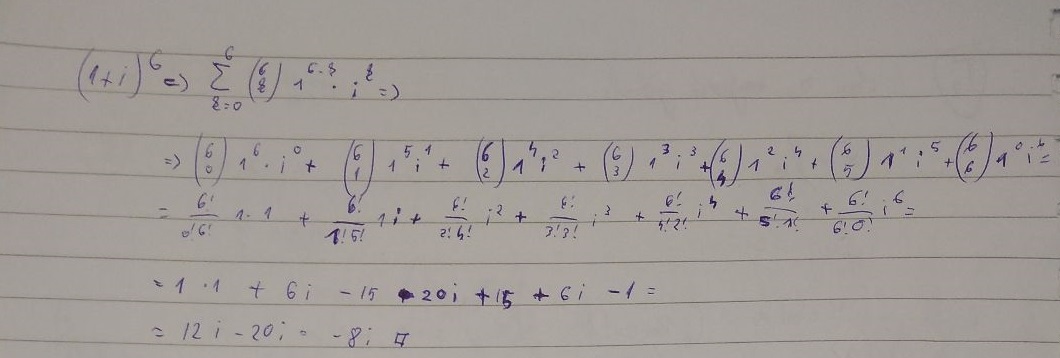 (1+i)^6 => \sum_{k=0}^{6} \binom{6}{k} 1^{6-k} · i^k =>
=> \binom{6}{0} 1^6 · i^0 + \binom{6}{1} 1^5 i^1 + \binom{6}{2} 1^4 i^2 + \binom{6}{3} 1^3 i^3 + \binom{6}{4} 1^2 i^4 + \binom{6}{5} 1^1 i^5 + \binom{6}{6} 1^0 i^6 =
= \frac{6!}{0!6!} 1·1 + \frac{6!}{1!5!} 1i + \frac{6!}{2!4!} i^2 + \frac{6!}{3!3!} i^3 + \frac{6!}{4!2!} i^4 + \frac{6!}{5!1!} + \frac{6!}{6!0!} i^6 =
= 1 · 1 + 6i - 15 - 20i + 15 + 6i - 1 =
= 12i - 20i = -8i □